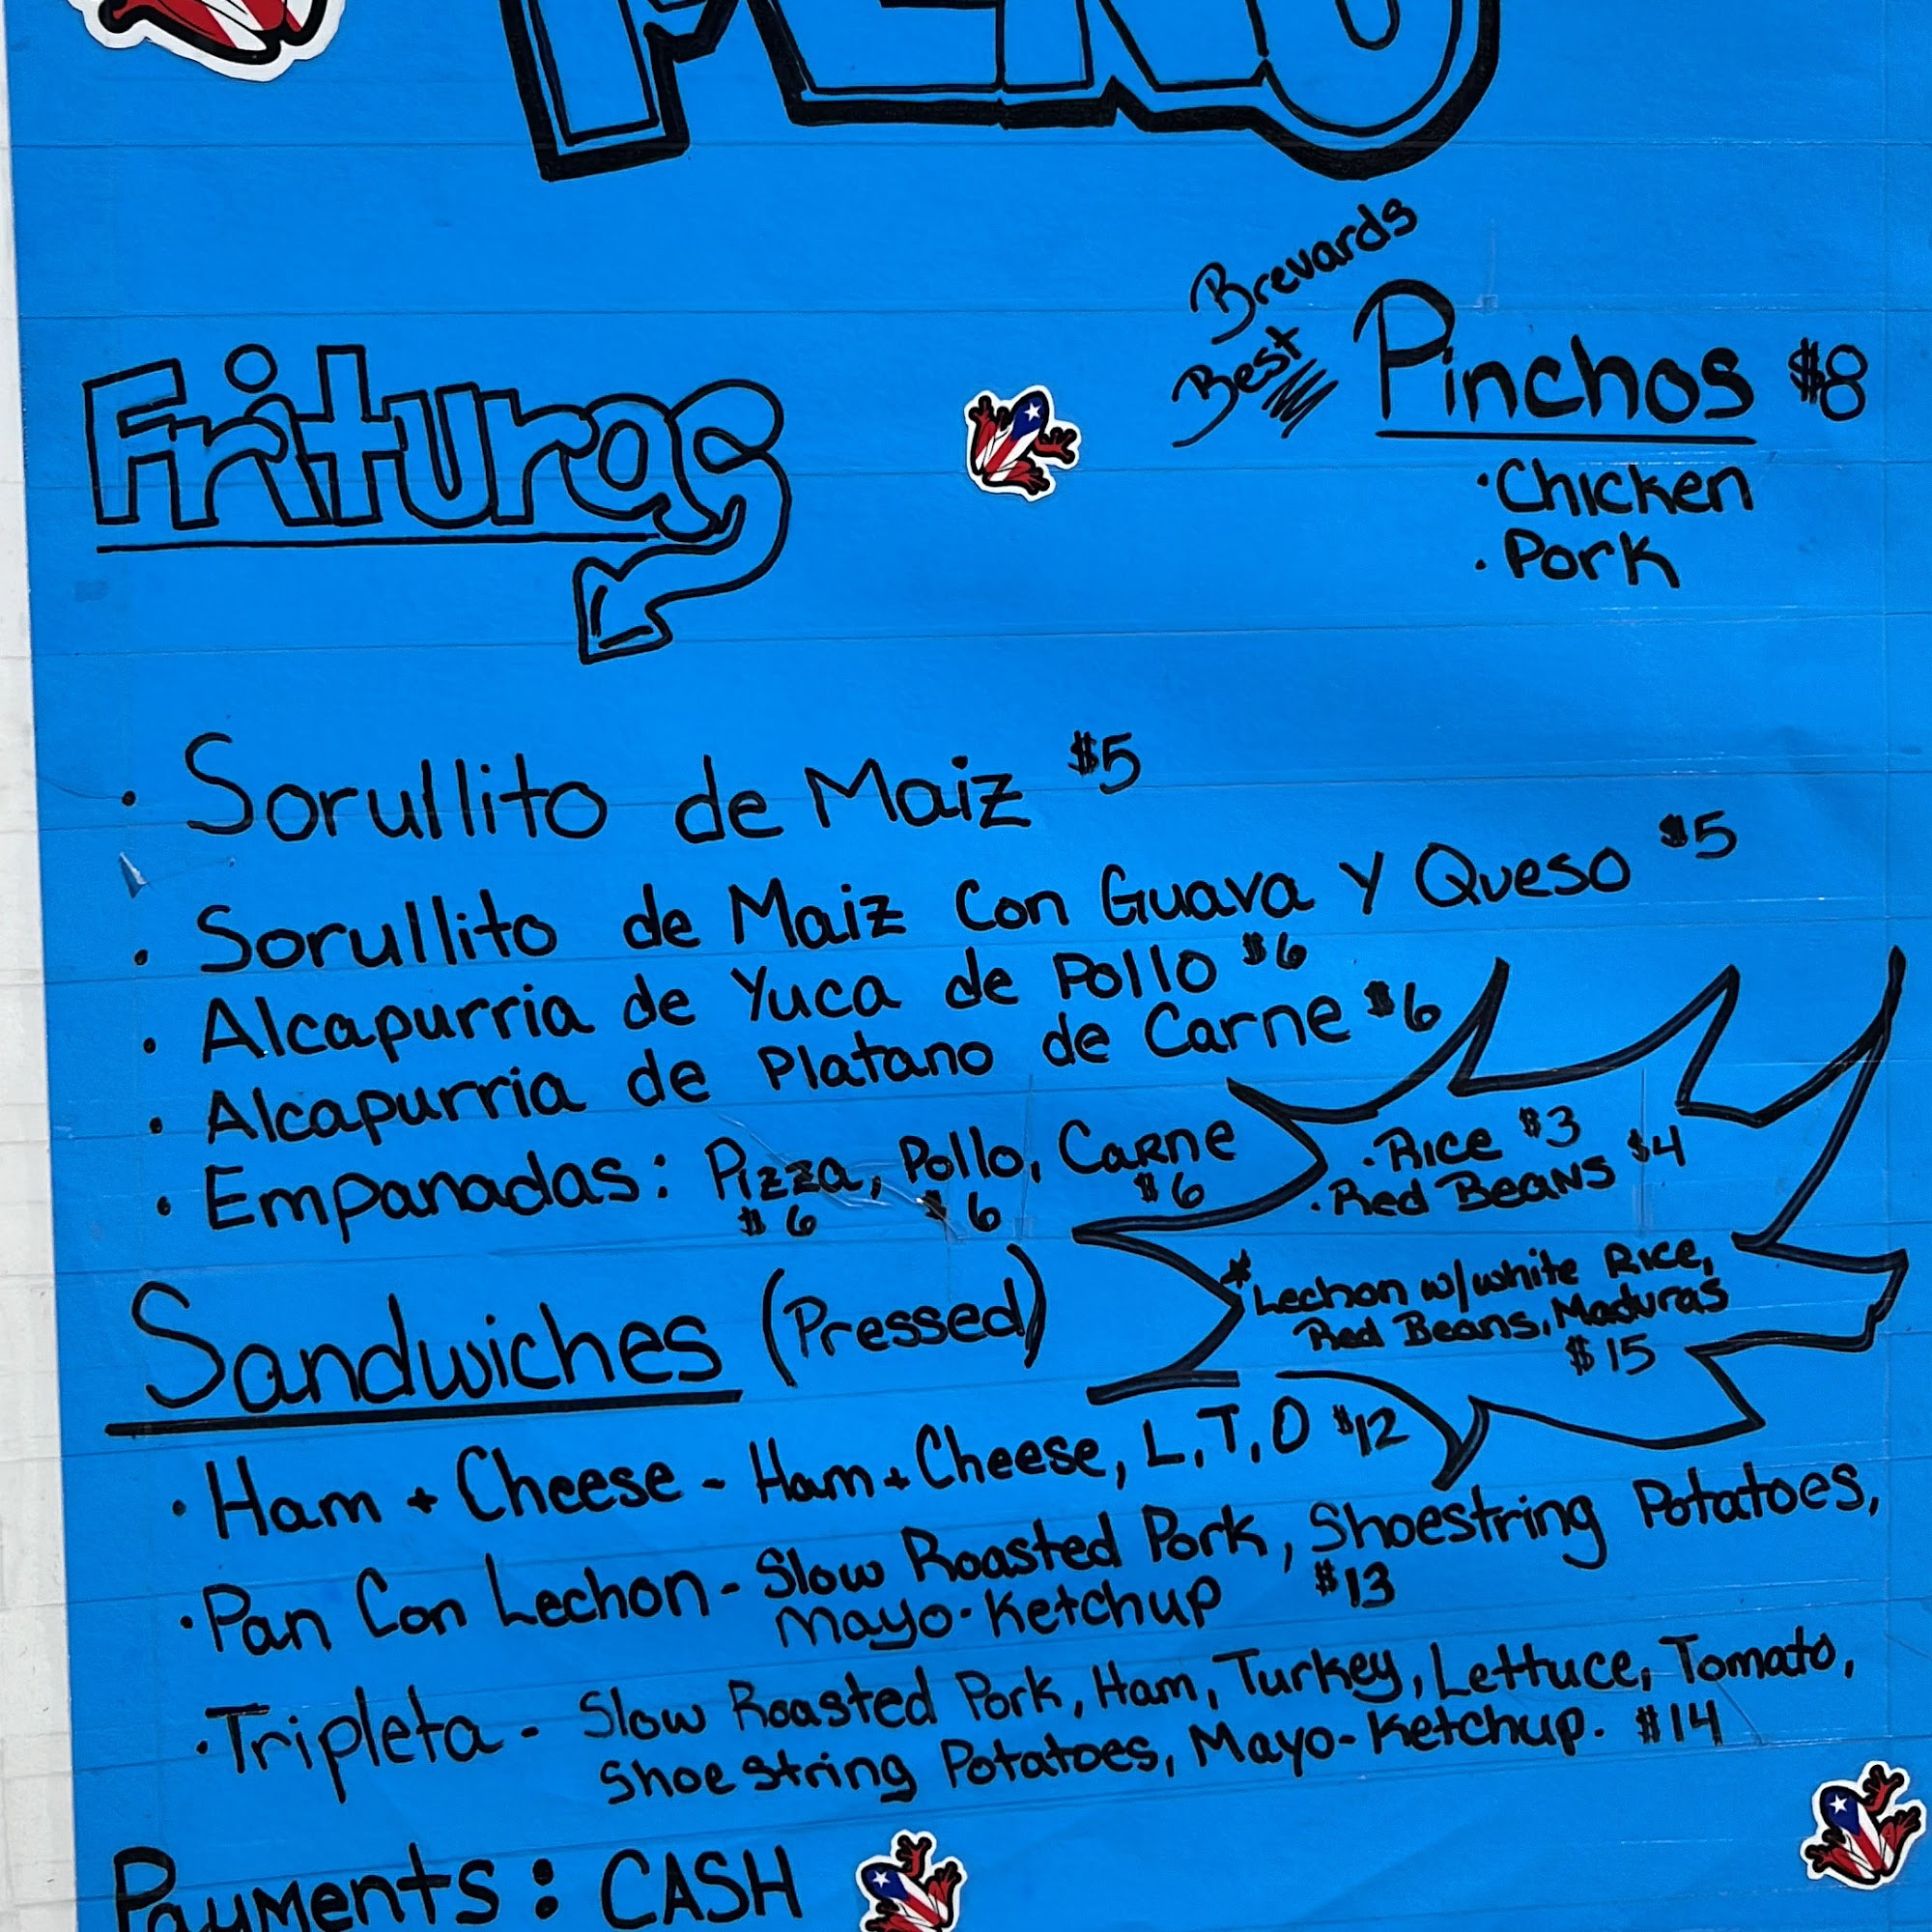 MENU
Brevards
Best
Pinchos $8
·Chicken
·Pork
Frituras
· Sorullito de Maiz $5
· Sorullito de Maiz Con Guava Y Queso $5
· Alcapurria de Yuca de Pollo $6
· Alcapurria de Platano de Carne $6
· Empanadas: Pizza, Pollo, Carne
$6 $6 $6
· Rice $3
· Red Beans $4
* Lechon w/white Rice,
Red Beans, Maduras
$15
Sandwiches (Pressed)
· Ham + Cheese - Ham + Cheese, L, T, O $12
· Pan Con Lechon - Slow Roasted Pork, Shoestring Potatoes,
Mayo-Ketchup $13
· Tripleta - Slow Roasted Pork, Ham, Turkey, Lettuce, Tomato,
Shoe string Potatoes, Mayo-Ketchup. $14
Payments: CASH